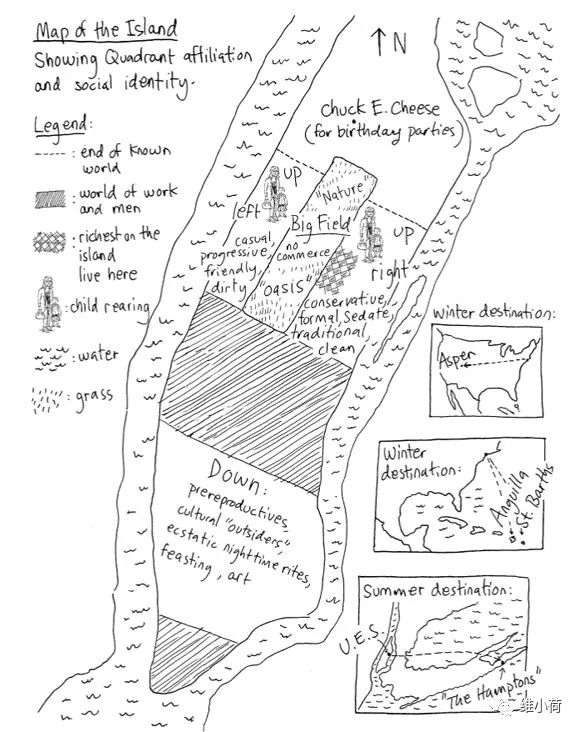 Map of the Island
Showing Quadrant affiliation
and social identity.
Legend:
: end of known
world
: world of work
and men
: richest on the
island
live here
: child rearing
: water
: grass
↑N
Chuck E. Cheese
(for birthday parties)
left
up
"Nature"
Big Field
no
commerce
"oasis"
casual,
progressive,
friendly,
dirty
up
right
conservative,
formal, Sedate,
traditional,
clean
Down:
prereproductives,
cultural "outsiders,"
ecstatic nighttime rites,
feasting, art
Winter destination:
Aspen
Winter
destination:
Anguilla
St. Barths
Summer destination:
U.E.S.
"The Hamptons"
维小荷